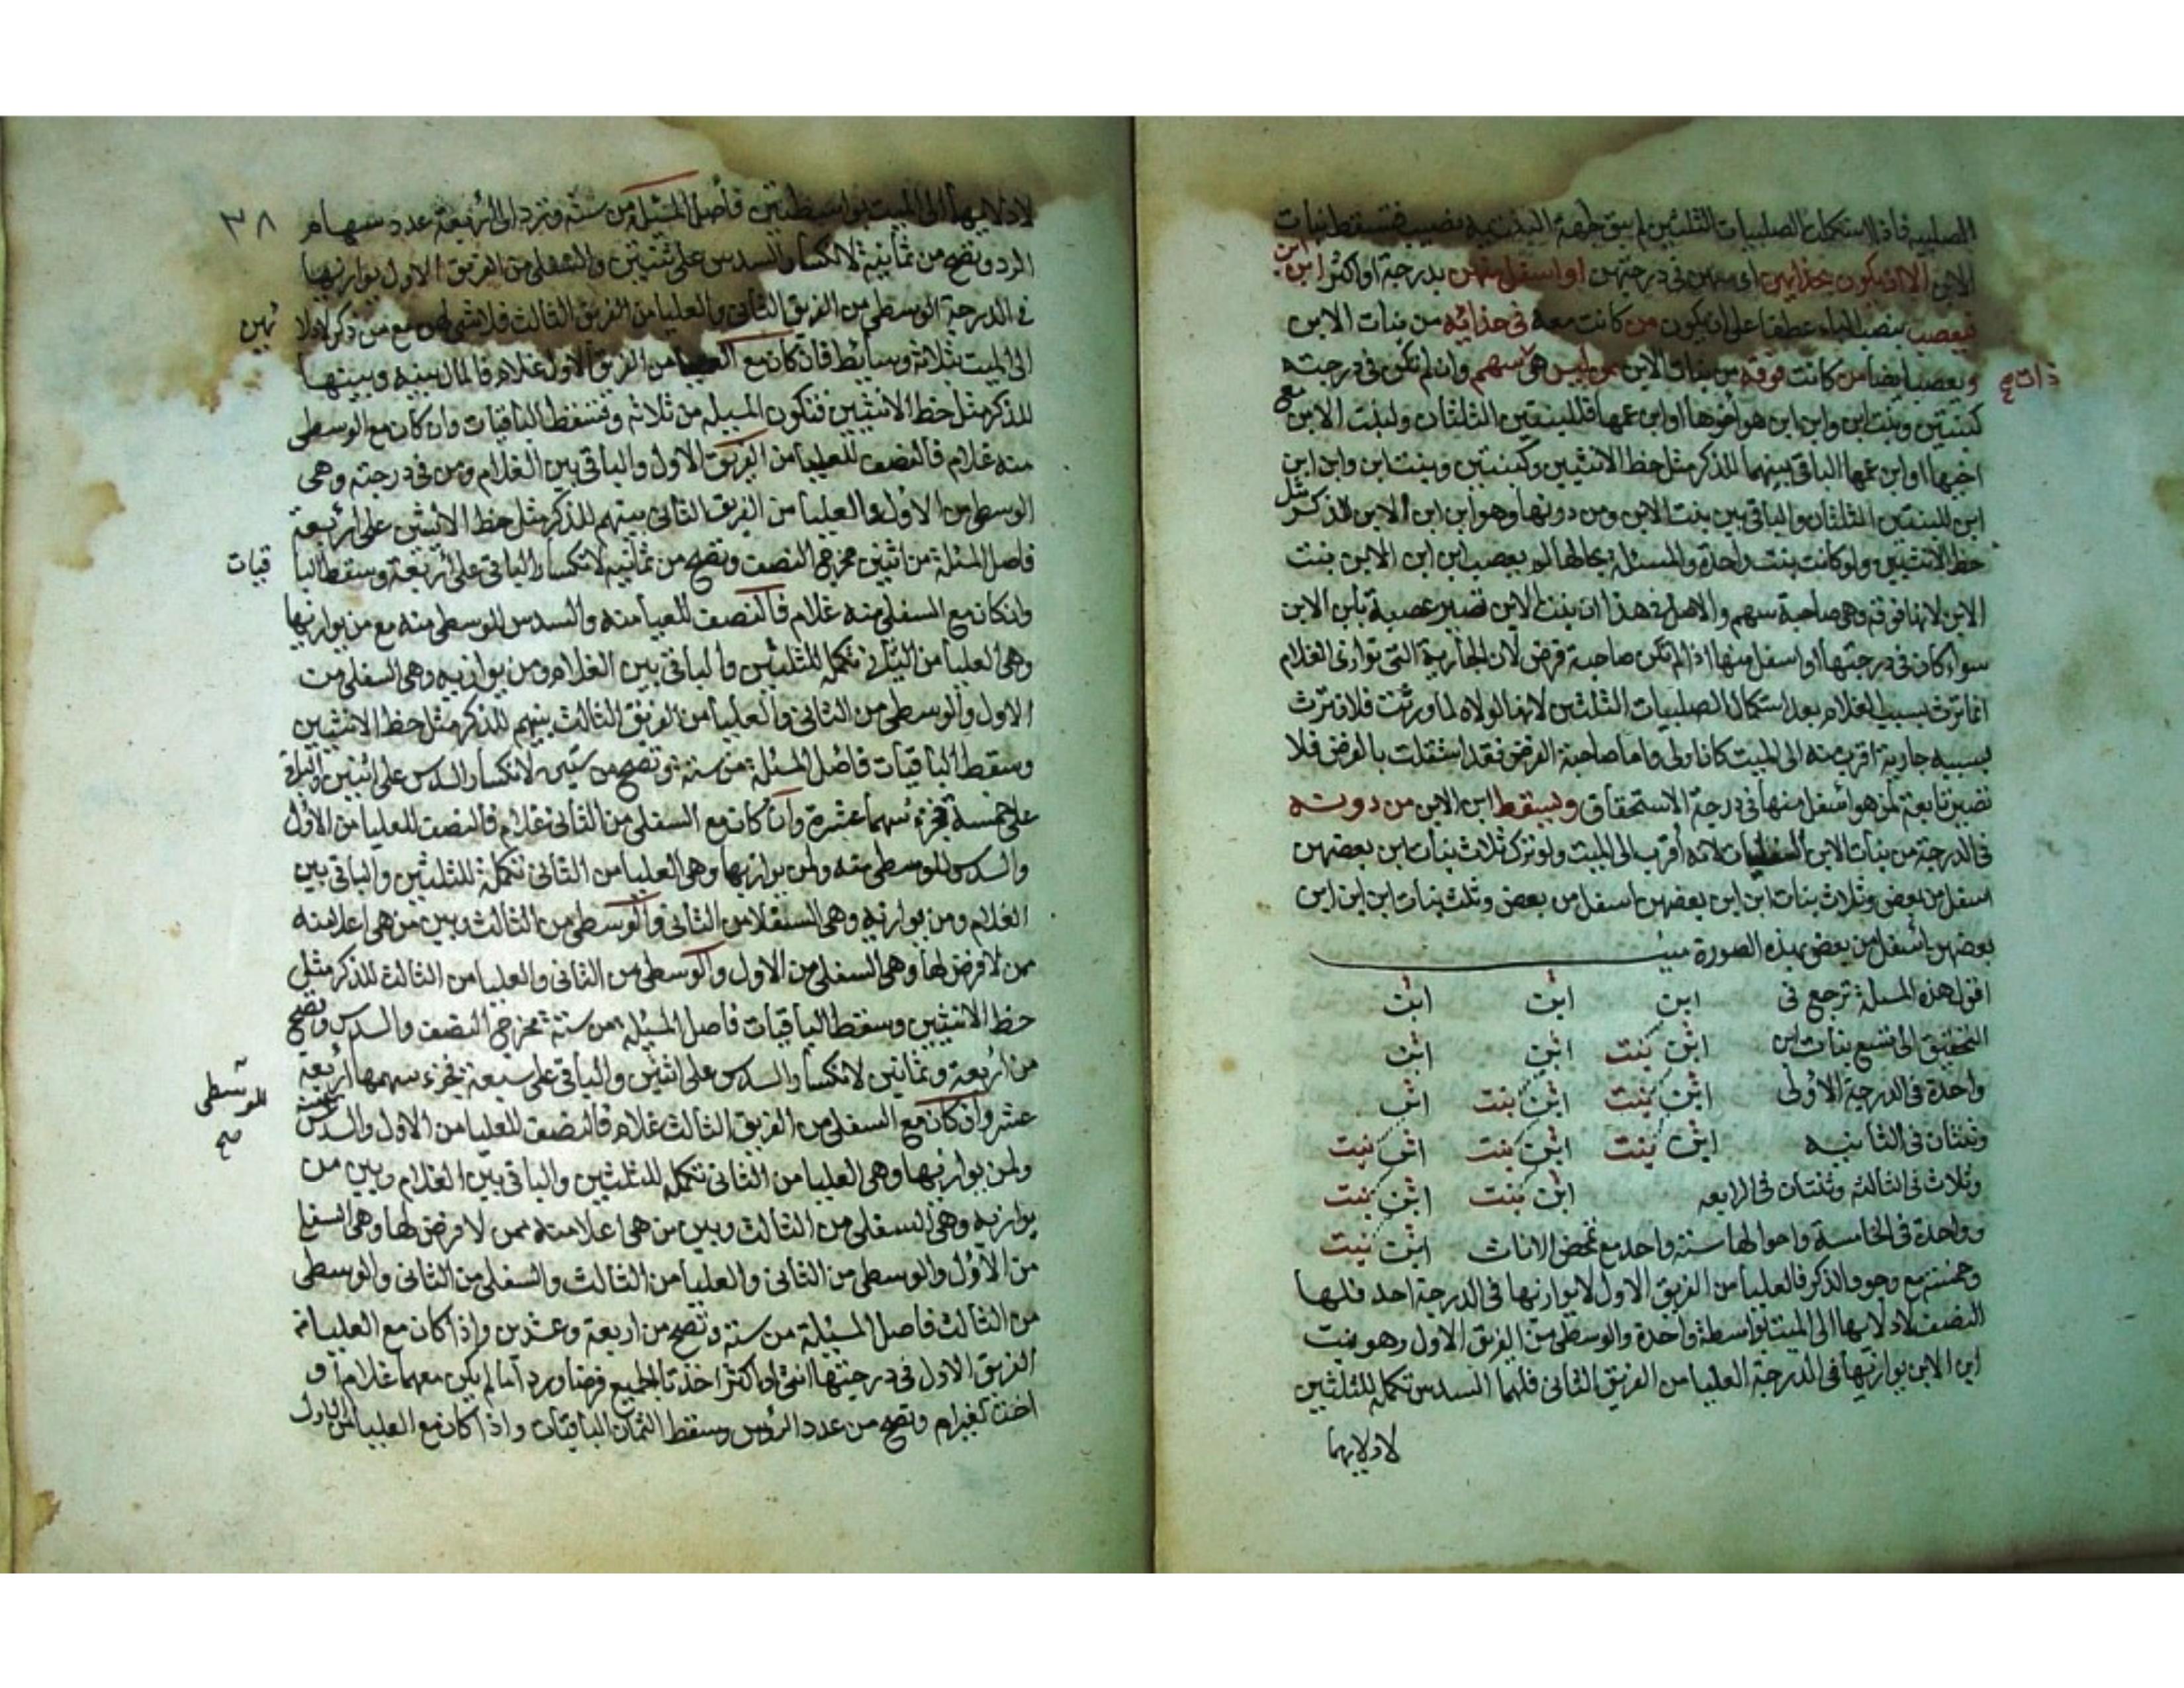 الصلبيه فاذا استكملت الصلبيات الثلثين لم يبق لجهة البنتيه نصيب فتسقط بنات
الابن الا ان يكون بحذايهن اى معهن فى درجتهن او اسفل منهن بدرجة او اكثر ابن ابن
فيعصب بنصب الباء عطفا على ان يكون من كانت معه فى حذائه من بنات الابن
ويعصب ايضا من كانت فوقه من بنات الابن ممن ليس هى سهم وان لم تكن فى درجته
ذات صح
كبنتين وبنت ابن وابن ابن هو اخوها او ابن عمها فللبنتين الثلثان ولبنت الابن مع
اخيها او ابن عمها الباقى بينهما للذكر مثل حظ الانثيين وكبنتين وبنت ابن وابن ابن
ابن للبنتين الثلثان والباقى بين بنت الابن ومن دونها وهو ابن ابن الابن للذكر مثل
حظ الانثيين ولو كانت بنت واحدة والمسئلة بحالها لم يعصب ابن ابن الابن بنت
الابن لانها فوقه وهى صاحبة سهم والاصل فى هذا ان بنت الابن تصير عصبة بابن الابن
سواء كان فى درجتها او اسفل منها اذا لم تكن صاحبة فرض لان الجارية التى توازى الغلام
انما ترث بسبب الغلام بعد استكمال الصلبيات الثلثين لانها لولاه لما ورثت فلان ترث
بسببه جارية اقرب منه الى الميت كان اولى واما صاحبة الفرض فقد استقلت بالفرض فلا
تصير تابعة لمن هو اسفل منها فى درجة الاستحقاق ويسقط ابن الابن من دونه
فى الدرجة من بنات الابن السفليات لانه أقرب الى الميت ولو ترك ثلاث بنات ابن بعضهن
اسفل من بعض وثلاث بنات ابن ابن بعضهن اسفل من بعض وثلث بنات ابن ابن ابن
بعضهن اسفل من بعض بهذه الصورة ميت
اقول هذه المسئلة ترجع فى ابن ابن ابن
التحقيق الى تسع بنات ابن ابن بنت ابن ابن
واحدة فى الدرجة الاولى ابن بنت ابن بنت ابن
وثنتان فى الثانيه ابن بنت ابن بنت ابن بنت
وثلاث فى الثالثه وثنتان فى الرابعه ابن بنت ابن بنت
وواحدة فى الخامسة واحوالها ستة واحد مع تمحض الاناث ابن بنت
وخمسة مع وجود الذكر فالعليا من الفريق الاول لا يوازيها فى الدرجة احد فلها
النصف لادلايها الى الميت بواسطة واحدة والوسطى من الفريق الاول وهو بنت
ابن الابن يوازيها فى الدرجة العليا من الفريق الثانى فلهما السدس تكمله للثلثين
لادلايهما
٣٨
لادلايهما الى الميت بواسطتين فأصل المسئلة من ستة وترد الى اربعة عدد سهام
الرد وتصح من ثمانية لانكسار السدس على ثنتين والسفلى من الفريق الاول يوازيها
فى الدرجة الوسطى من الفريق الثانى والعليا من الفريق الثالث فلا شئ لهن مع من ذكر لادلا
ئهن
الى الميت بثلاثة وسائط فان كان مع العليا من الفريق الاول غلام فالمال بينه وبينها
للذكر مثل حظ الانثيين فتكون المسئله من ثلاثه وتسقط الباقيات وان كان مع الوسطى
منه غلام فالنصف للعليا من الفريق الاول والباقى بين الغلام ومن فى درجته وهى
الوسطى من الاول والعليا من الفريق الثانى بينهم للذكر مثل حظ الانثيين على اربعة
فاصل المسئلة من اثنين مخرج النصف وتصح من ثمانيه لانكسار الباقى على اربعة وسقط البا
قيات
وان كان مع السفلى منه غلام فالنصف للعليا منه والسدس للوسطى منه مع من يوازيها
وهى العليا من الثانى تكملة للثلثين والباقى بين الغلام ومن يوازيه وهى السفلى من
الاول والوسطى من الثانى والعليا من الفريق الثالث بينهم للذكر مثل حظ الانثيين
وسقط الباقيات فاصل المسئلة من ستة وتصح من ستين لانكسار السدس على اثنين والباقى
على خمسة فجزء سهمها عشرة وان كان مع السفلى من الثانى غلام فالنصف للعليا من الاول
والسدس للوسطى منه ولمن يوازيها وهى العليا من الثانى تكملة للثلثين والباقى بين
الغلام ومن يوازيه وهى السفلا من الثانى والوسطى من الثالث وبين من هى اعلا منه
ممن لا فرض لها وهى السفلى من الاول والوسطى من الثانى والعليا من الثالث للذكر مثل
حظ الانثيين وسقط الباقيات فاصل المسئلة من ستة مخرج النصف والسدس وتصح
من اربعة وثمانين لانكسار السدس على اثنين والباقى على سبعة فجزء سهمها اربعة
عشر وان كان مع السفلى من الفريق الثالث غلام فالنصف للعليا من الاول والسدس
للوسطى
صح
ولمن يوازيها وهى العليا من الثانى تكمله للثلثين والباقى بين الغلام وبين من
يوازيه وهى السفلى من الثالث وبين من هى اعلا منه ممن لا فرض لها وهى السفلى
من الاول والوسطى من الثانى والعليا من الثالث والسفلى من الثانى والوسطى
من الثالث فاصل المسئلة من ستة وتصح من اربعة وعشرين واذا كان مع العليا من
الفريق الاول فى درجتها انثى او اكثر اخذتا الجميع فرضا وردا ما لم يكن معهما غلام او
اخت لغير ام وتصح من عدد الرؤس وسقط الثمان الباقيات واذا كان مع العليا من الاول